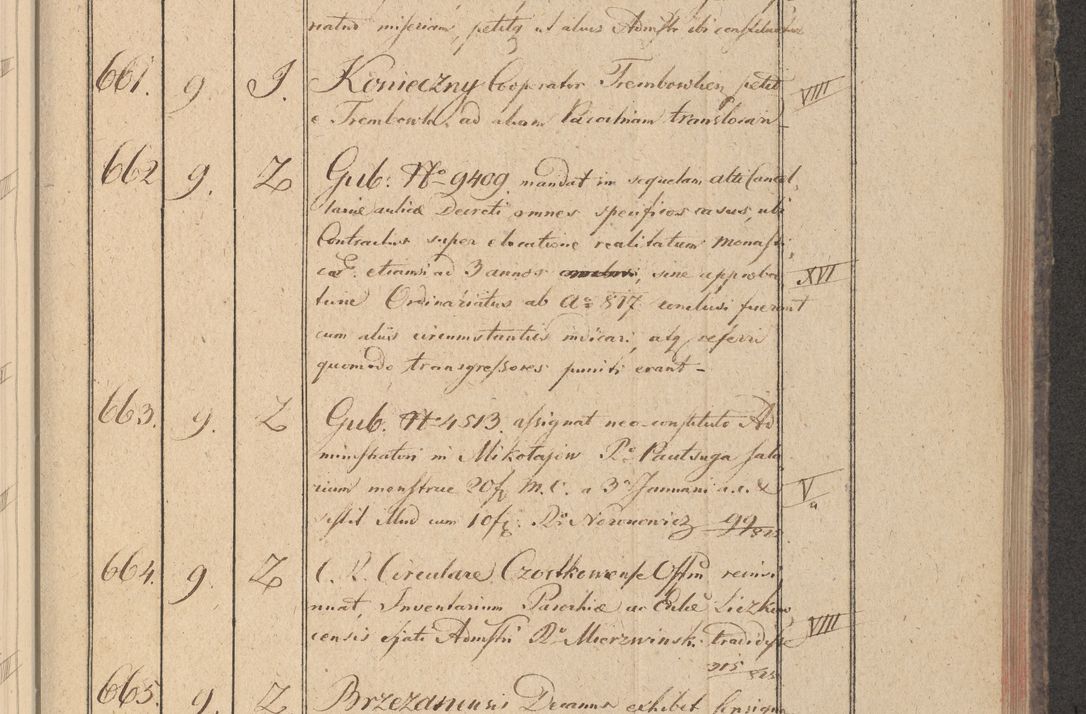 miseriam, petitq ut alius Admstr ibi
661. 9 J. Konieczny Cooperator Trembowlien petit VIII
e Trembowla ad aliam Parochiam translocari
662 9. Z Gub: No 9409 mandat in sequelam alti Cancel
lariæ aulicæ Decreti omnes specificos casus, ubi
Contractus super elocatione realitatum monasti
etiamsi ad 3 annos sine approba XVI
tione Ordinariatus ab Ao 817 conclusi fuerunt
cum aliis circumstantiis indicari, atq referri
quomodo transgressores puniti erant -
663. 9. Z Gub. No 4513. assignat neo-constituto Ad
ministratori in Mikołajow Ro Pautsuga sala
rium menstrue 20f M.C. a 3 Januarii a.c. & V
sistit illud cum 10f Ro 99/825
664. 9. Z C. R. Circulare Czortkowense Offm
Inventarium Parochiæ ac Liczkow
censis Admstri Ro Mierzwinsk. tradidisse VIII
315/825
665. 9. Z Brzezanensis Decanus exhibet Consigna